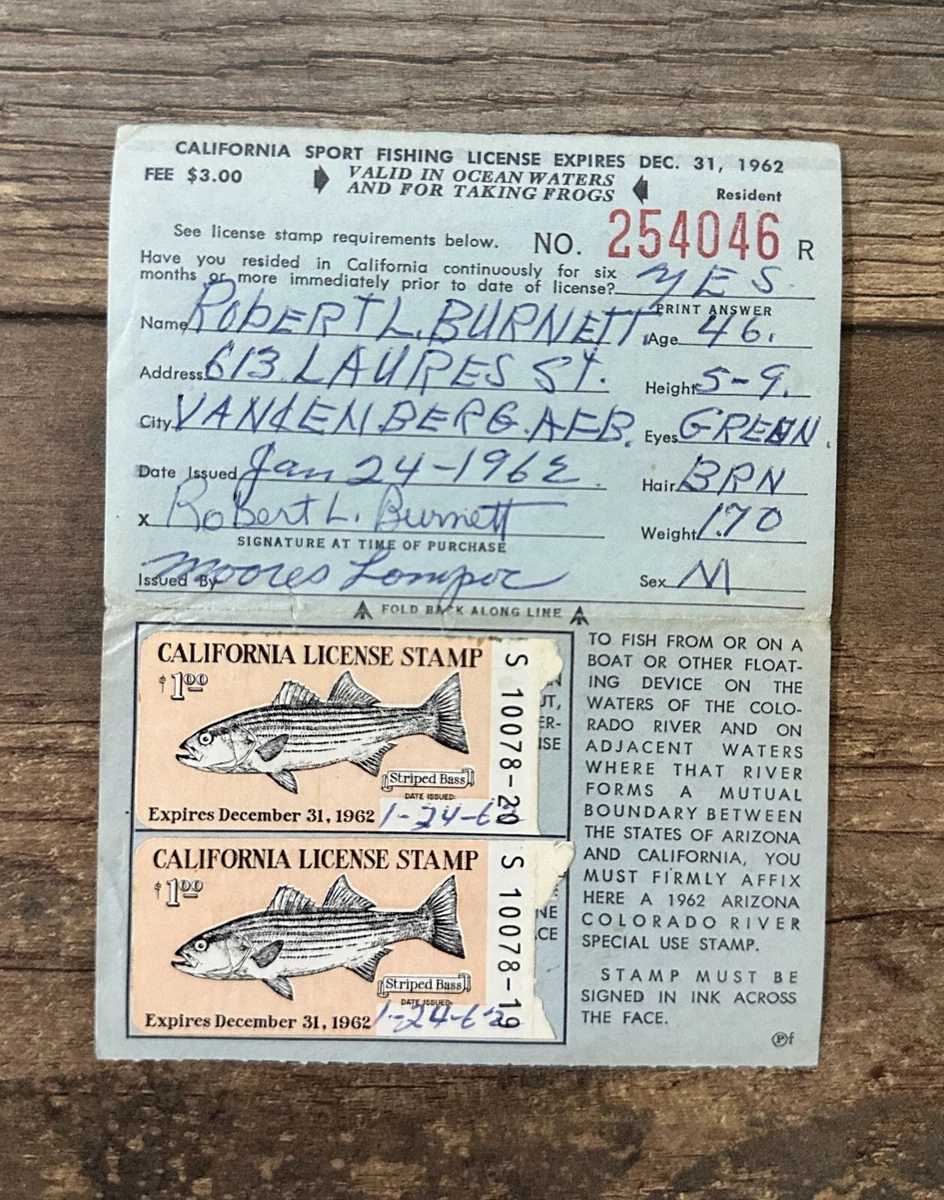 CALIFORNIA SPORT FISHING LICENSE EXPIRES DEC. 31, 1962
FEE $3.00 VALID IN OCEAN WATERS Resident
AND FOR TAKING FROGS
See license stamp requirements below. NO. 254046 R
Have you resided in California continuously for six
months or more immediately prior to date of license? YES
PRINT ANSWER
Name ROBERT L. BURNETT Age 46.
Address 613 LAURES ST. Height 5-9.
City VANDENBERG. AFB. Eyes GREEN.
Date Issued Jan 24-1962. Hair BRN
X Robert L. Burnett Weight 170
SIGNATURE AT TIME OF PURCHASE
Issued By Moores Lompoc Sex M
FOLD BACK ALONG LINE
CALIFORNIA LICENSE STAMP
$1.00
S 10078-20
Striped Bass
DATE ISSUED:
Expires December 31, 1962 1-24-62
CALIFORNIA LICENSE STAMP
$1.00
S 10078-19
Striped Bass
DATE ISSUED:
Expires December 31, 1962 1-24-62
TO FISH FROM OR ON A
BOAT OR OTHER FLOAT-
ING DEVICE ON THE
WATERS OF THE COLO-
RADO RIVER AND ON
ADJACENT WATERS
WHERE THAT RIVER
FORMS A MUTUAL
BOUNDARY BETWEEN
THE STATES OF ARIZONA
AND CALIFORNIA, YOU
MUST FIRMLY AFFIX
HERE A 1962 ARIZONA
COLORADO RIVER
SPECIAL USE STAMP.
STAMP MUST BE
SIGNED IN INK ACROSS
THE FACE.